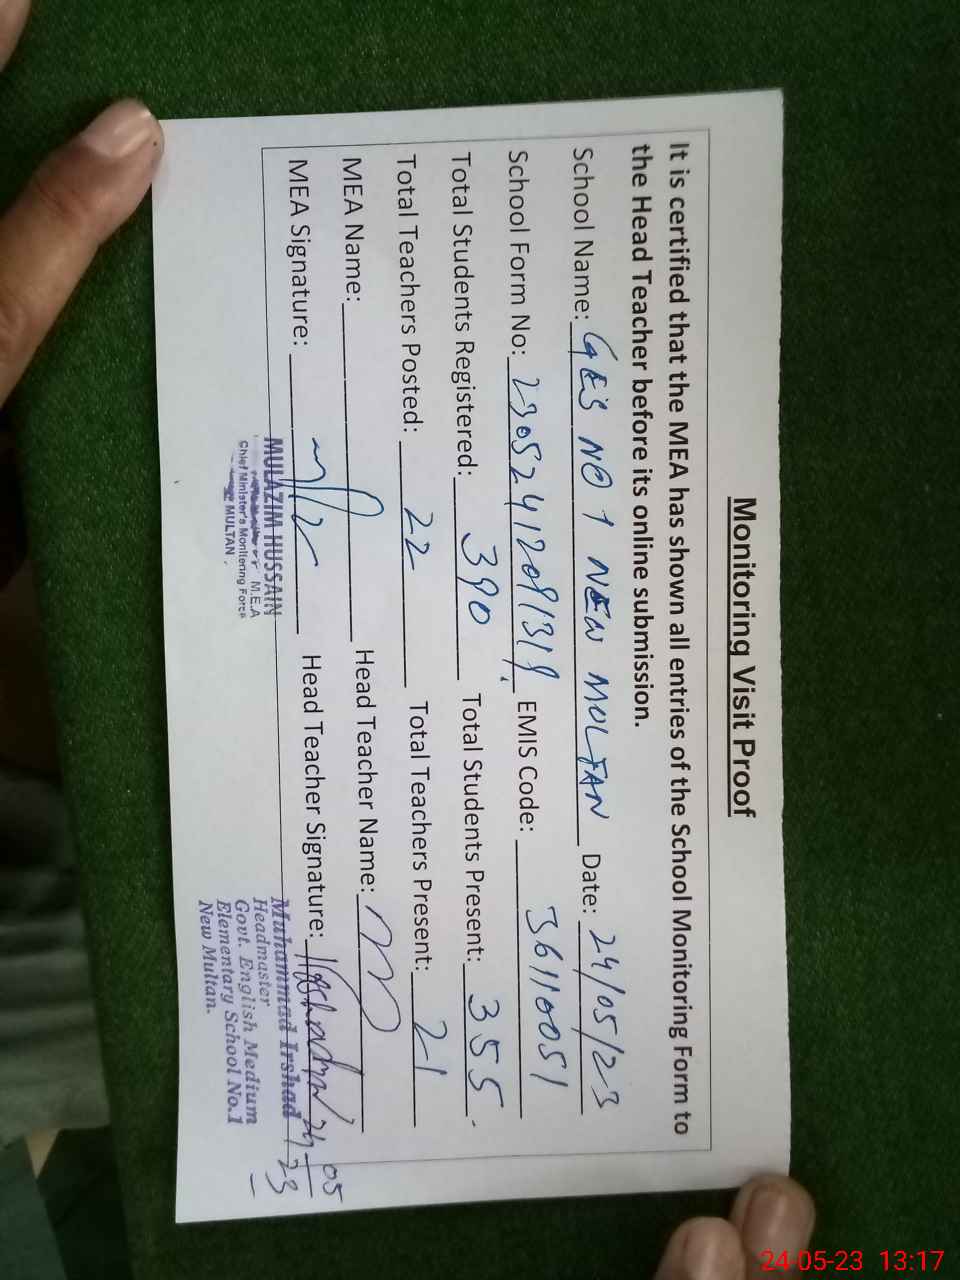 Monitoring Visit Proof
It is certified that the MEA has shown all entries of the School Monitoring Form to
the Head Teacher before its online submission.
School Name: GES NO 1 NEW MULTAN Date: 24/05/23
School Form No: EMIS Code: 36110051
Total Students Registered: 390 Total Students Present: 355
Total Teachers Posted: 22 Total Teachers Present: 21
MEA Name: Head Teacher Name:
MEA Signature: Head Teacher Signature:
MULAZIM HUSSAIN
M.E.A
Chief Minister's Monitoring Force
MULTAN.
Muhammad Irshad
Headmaster
Govt. English Medium
Elementary School No.1
New Multan.
24-05-23 13:17